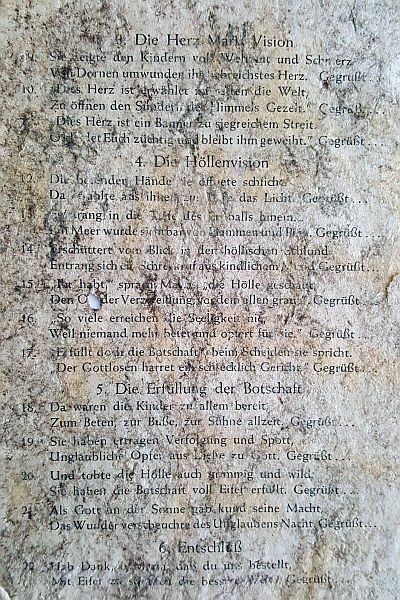 3. Die Herz Mariä Vision
9. Sie zeigte den Kindern voll Wehmut und Schmerz
Von Dornen umwunden ihr liebreichstes Herz. Gegrüßt...
10. "Dies Herz ist erwählet zu retten die Welt,
Zu öffnen den Sündern des Himmels Gezelt." Gegrüßt...
Dies Herz ist ein Banner zu siegreichem Streit.
O bildet Euch züchtig und bleibt ihm geweiht." Gegrüßt...
4. Die Höllenvision
12. Die betenden Hände sie öffnete schlicht.
Da strahlte aus ihnen zur Erde das Licht. Gegrüßt...
13. drang in die Tiefe des Erdballs hinein.
Ein Meer wurde sichtbar von Flammen und Gegrüßt...
14. Erschüttert vom Blick in den höllischen Schlund
Entrang sich ein Schreckruf aus kindlichem Mund Gegrüßt...
15. "Ihr habt," sprach Maria, "die Hölle geschaut,
Den Ort der Verzweiflung, vor dem allen graut." Gegrüßt...
16. "So viele erreichen die Seeligkeit nie,
Weil niemand mehr betet und opfert für sie." Gegrüßt...
17. "Erfüllt doch die Botschaft", beim Scheiden sie spricht.
"Der Gottlosen harret ein schrecklich Gericht." Gegrüßt...
5. Die Erfüllung der Botschaft
18. Da waren die Kinder zu allem bereit,
Zum Beten, zur Buße, zur Sühne allzeit. Gegrüßt...
19. Sie haben ertragen Verfolgung und Spott,
Unglaubliche Opfer aus Liebe zu Gott. Gegrüßt...
20. Und tobte die Hölle auch grimmig und wild,
Sie haben die Botschaft voll Eifer erfüllt. Gegrüßt...
21. Als Gott an der Sonne gab kund seine Macht,
Das Wunder verscheuchte des Unglaubens Nacht, Gegrüßt...
6. Entschluß
22. Hab Dank, o Maria, daß du uns bestellt,
Mit Eifer zu die bessere Welt! Gegrüßt...